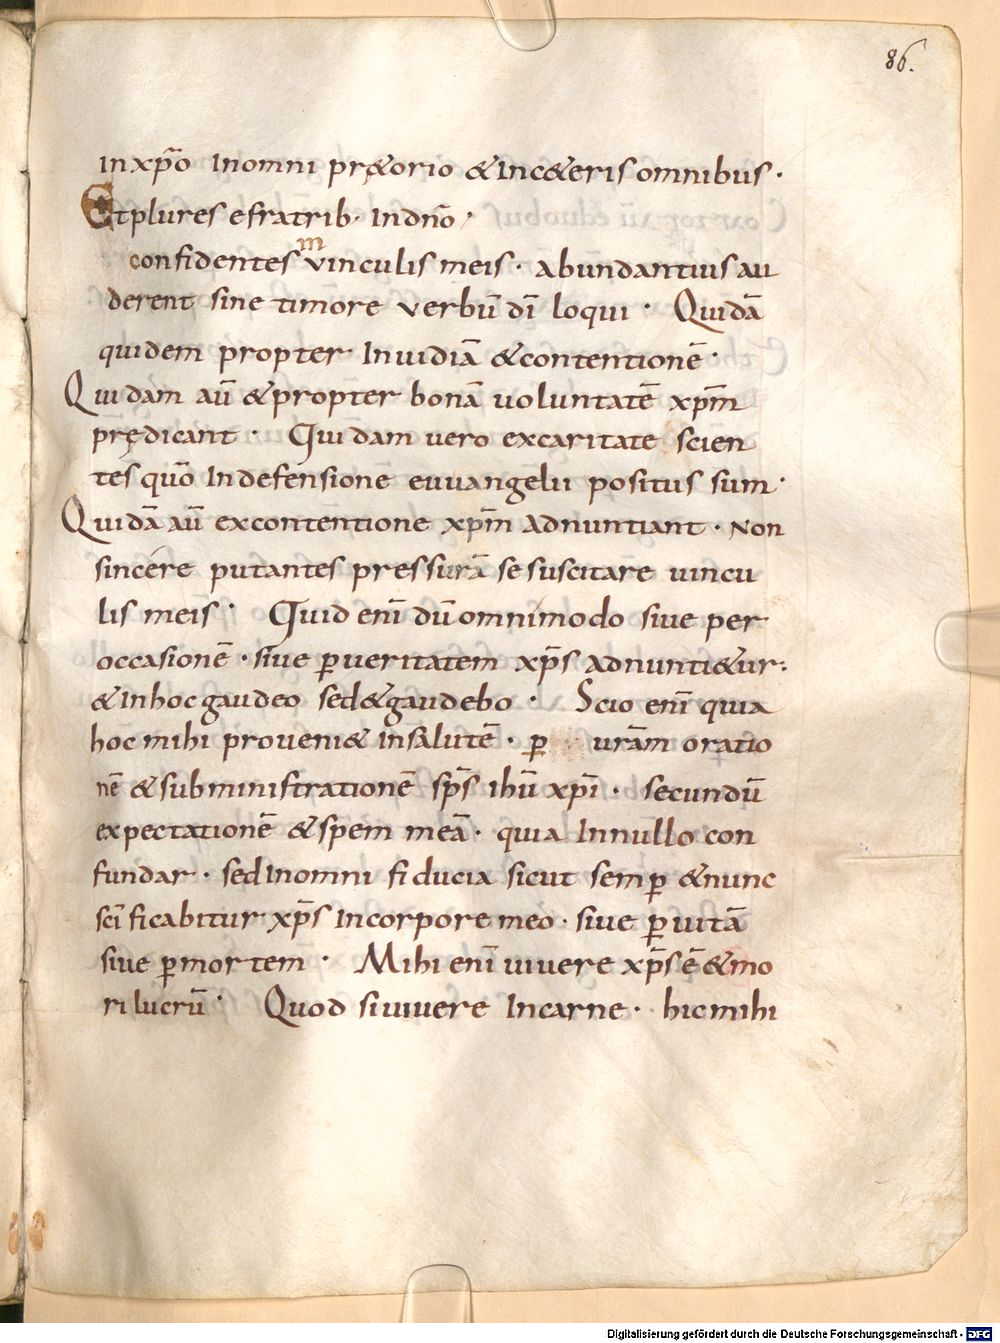 86.
in xp̄o Inomni pręorio &Inc&eris omnibus ·
Etplures efratrib· Indn̄o ·
confidentes m vinculis meis · abundantius au
derent sine timore verbū dī loqui · Quidā
quidem propter Inuidiā &contentionē ·
Quidam aū &propter bonā uoluntatē xp̄m
prędicant · Quidam uero excaritate scien
tes quō Indefensione euuangelii positus sum ·
Quidā aū excontentione xp̄m adnuntiant · Non
sincere putantes pressurā se suscitare uincu
lis meis · Quid enī dū omnimodo siue per
occasionē · siue ꝑueritatem xp̄s adnunti&ur ·
&Inhoc gaudeo sed&gaudebo · Scio enī quia
hoc mihi proueni& insalutē · ꝑ urām oratio
nē &subministrationē sp̄s ihū xp̄i · secundū
expectationē &spem meā · quia Innullo con
fundar · sedInomni fiducia sicut semꝑ &nunc
scīficabitur xp̄s Incorpore meo · siue ꝑuitā
siue ꝑmortem · Mihi enī uiuere xp̄s ē &mo
ri lucrū · Quod siuiuere Incarne · hicmihi
Digitalisierung gefördert durch die Deutsche Forschungsgemeinschaft - DFG